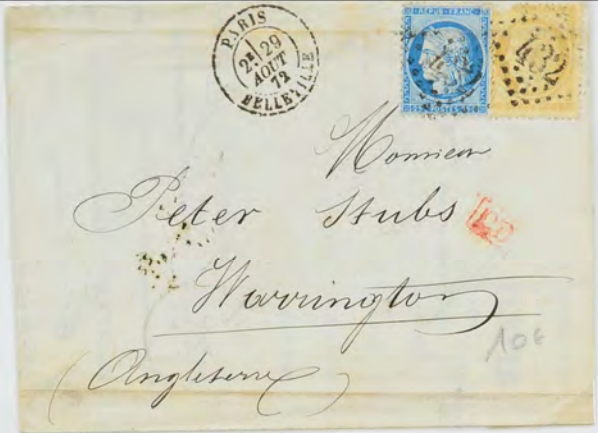 PARIS
2E 29
AOUT
72
BELLEVILLE
REPUB. FRANC.
25 POSTES 25
432
Monsieur
Peter Stubs
PD
Warrington
(Angleterre)
10€